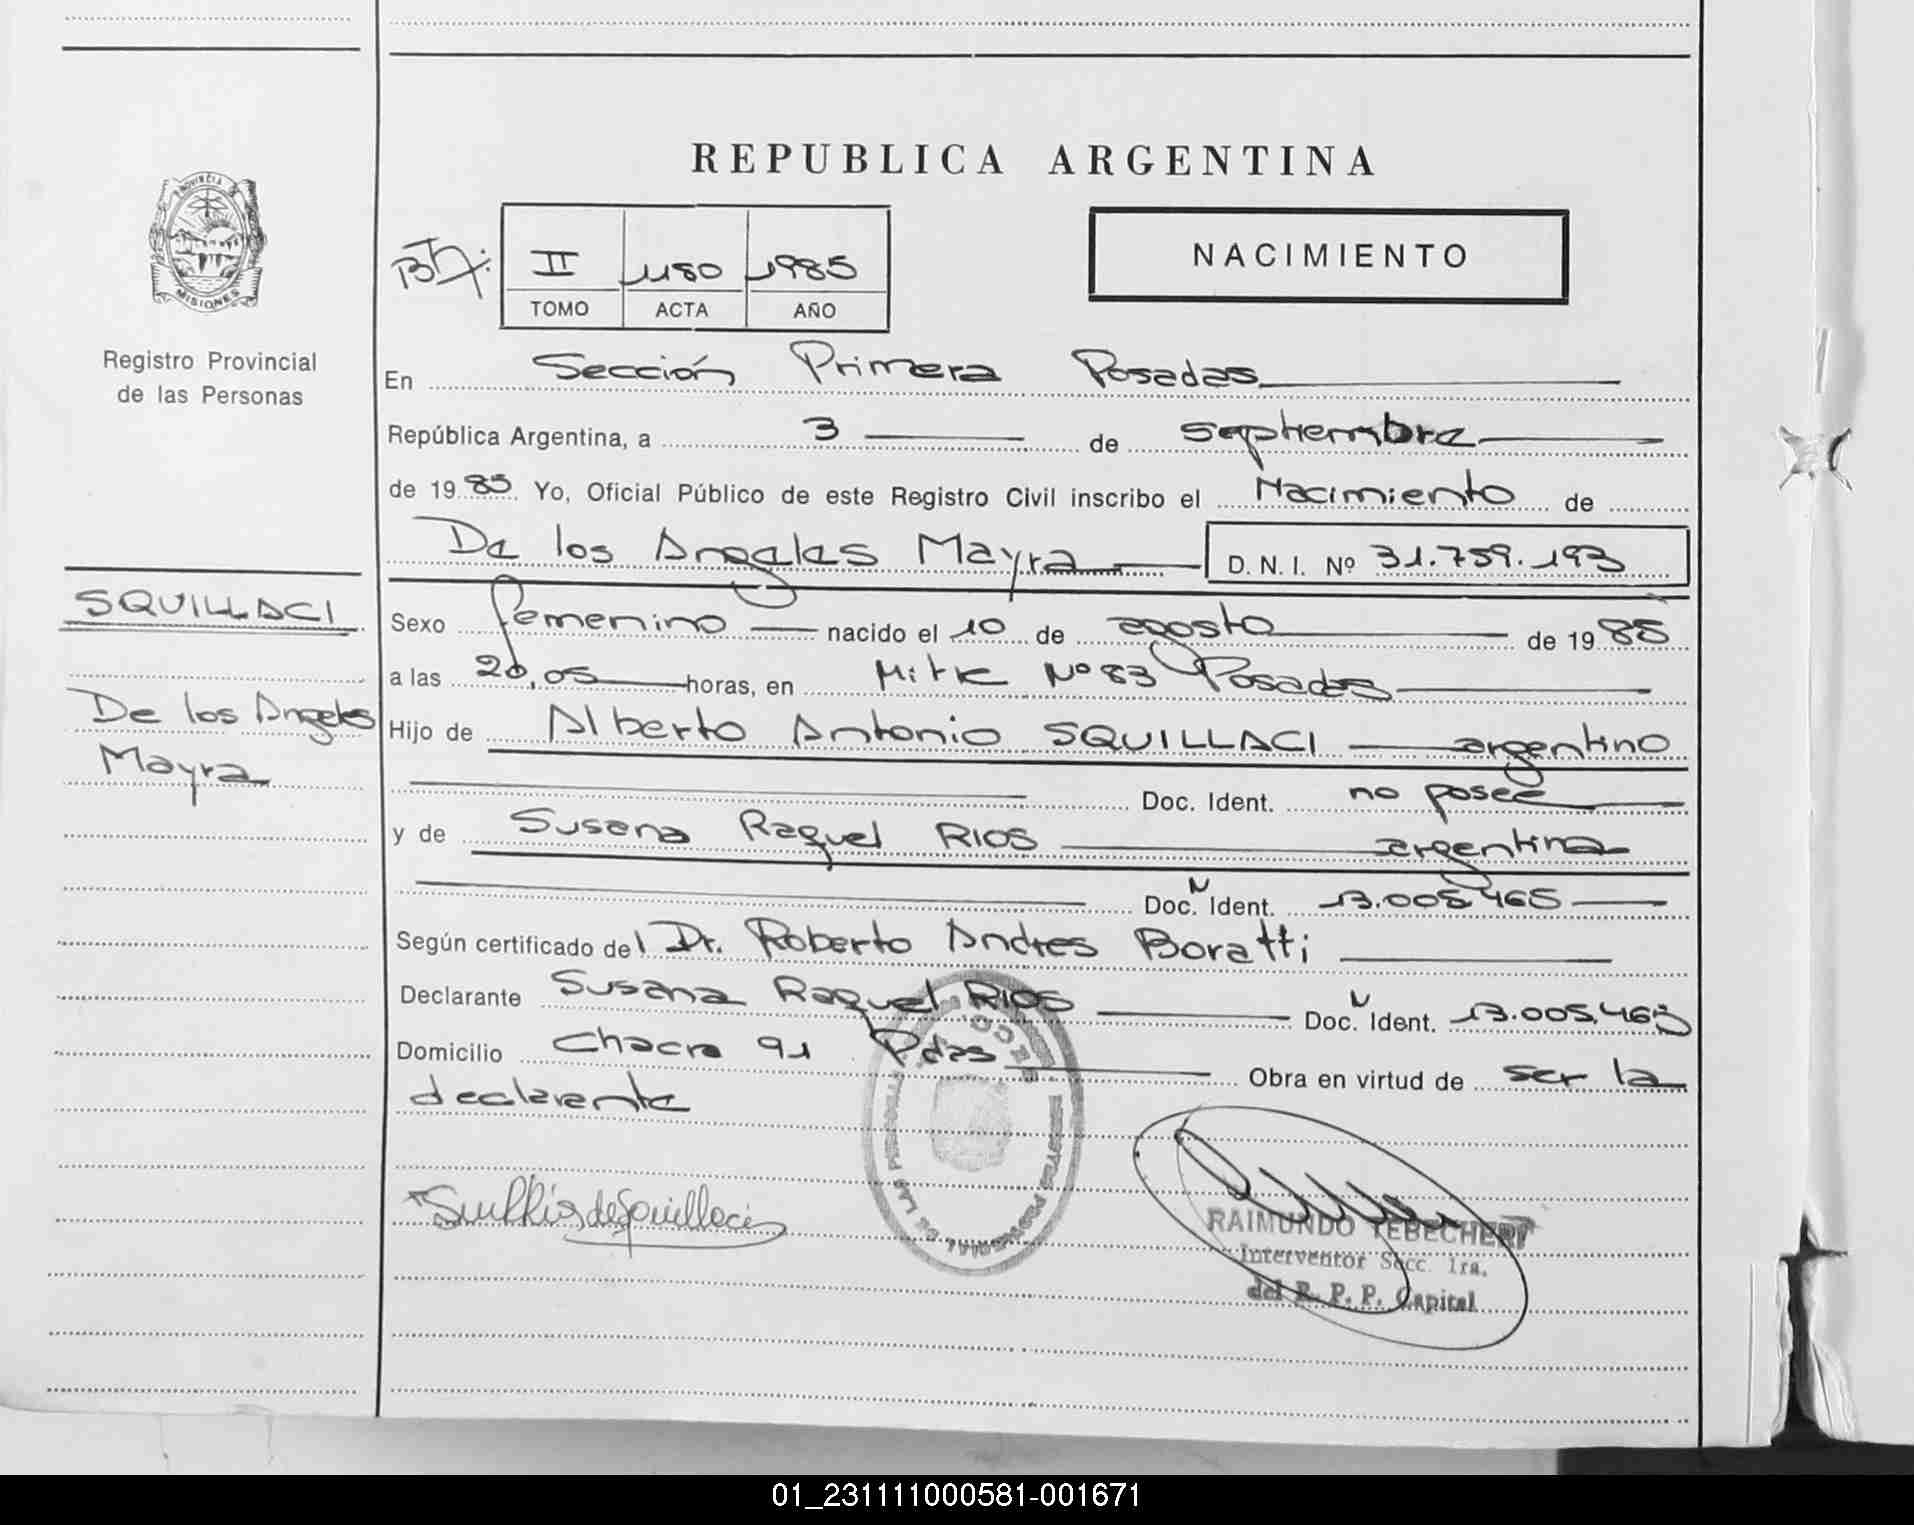 REPUBLICA ARGENTINA
PROVINCIA DE
MISIONES
Registro Provincial
de las Personas
II 1180 1985
TOMO ACTA AÑO
NACIMIENTO
En Sección Primera Posadas
República Argentina, a 3 de septiembre
de 1985 Yo, Oficial Público de este Registro Civil inscribo el Nacimiento de
De los Angeles Mayra D. N. I. Nº 31.759.193
SQUILLACI
De los Angeles
Mayra
Sexo femenino nacido el 10 de agosto de 1985
a las 20,05 horas, en Mitre Nº 83 Posadas
Hijo de Alberto Antonio SQUILLACI argentino
Doc. Ident. no posee
y de Susana Raquel RIOS argentina
Doc. N Ident. 13.005.465
Según certificado del Dr. Roberto Andres Boratti
Declarante Susana Raquel RIOS Doc. N Ident. 13.005.465
Domicilio Chacra 91 Pdas Obra en virtud de ser la
declarante
de Squillaci
DE LAS
RAIMUNDO TEBECHERI
Interventor Secc. 1ra.
del R. P. P. Capital
01_231111000581-001671